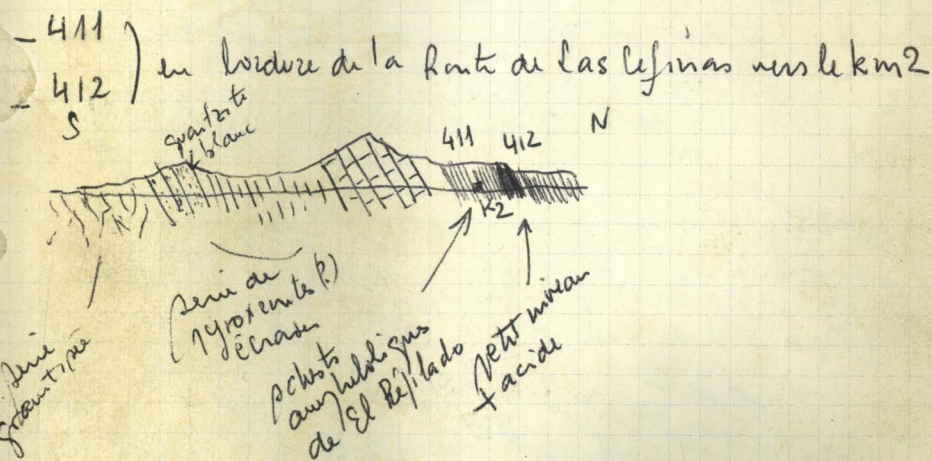 - 411
- 412
en bordure de la Route de Las Cefinas vers le km 2
S
N
quartzite
blanc
411 412
K2
serie
granitisée
serie de
pyroxenites (?)
écrasées
schists
amphiboliques
de El Répilado
petit niveau
+ acide